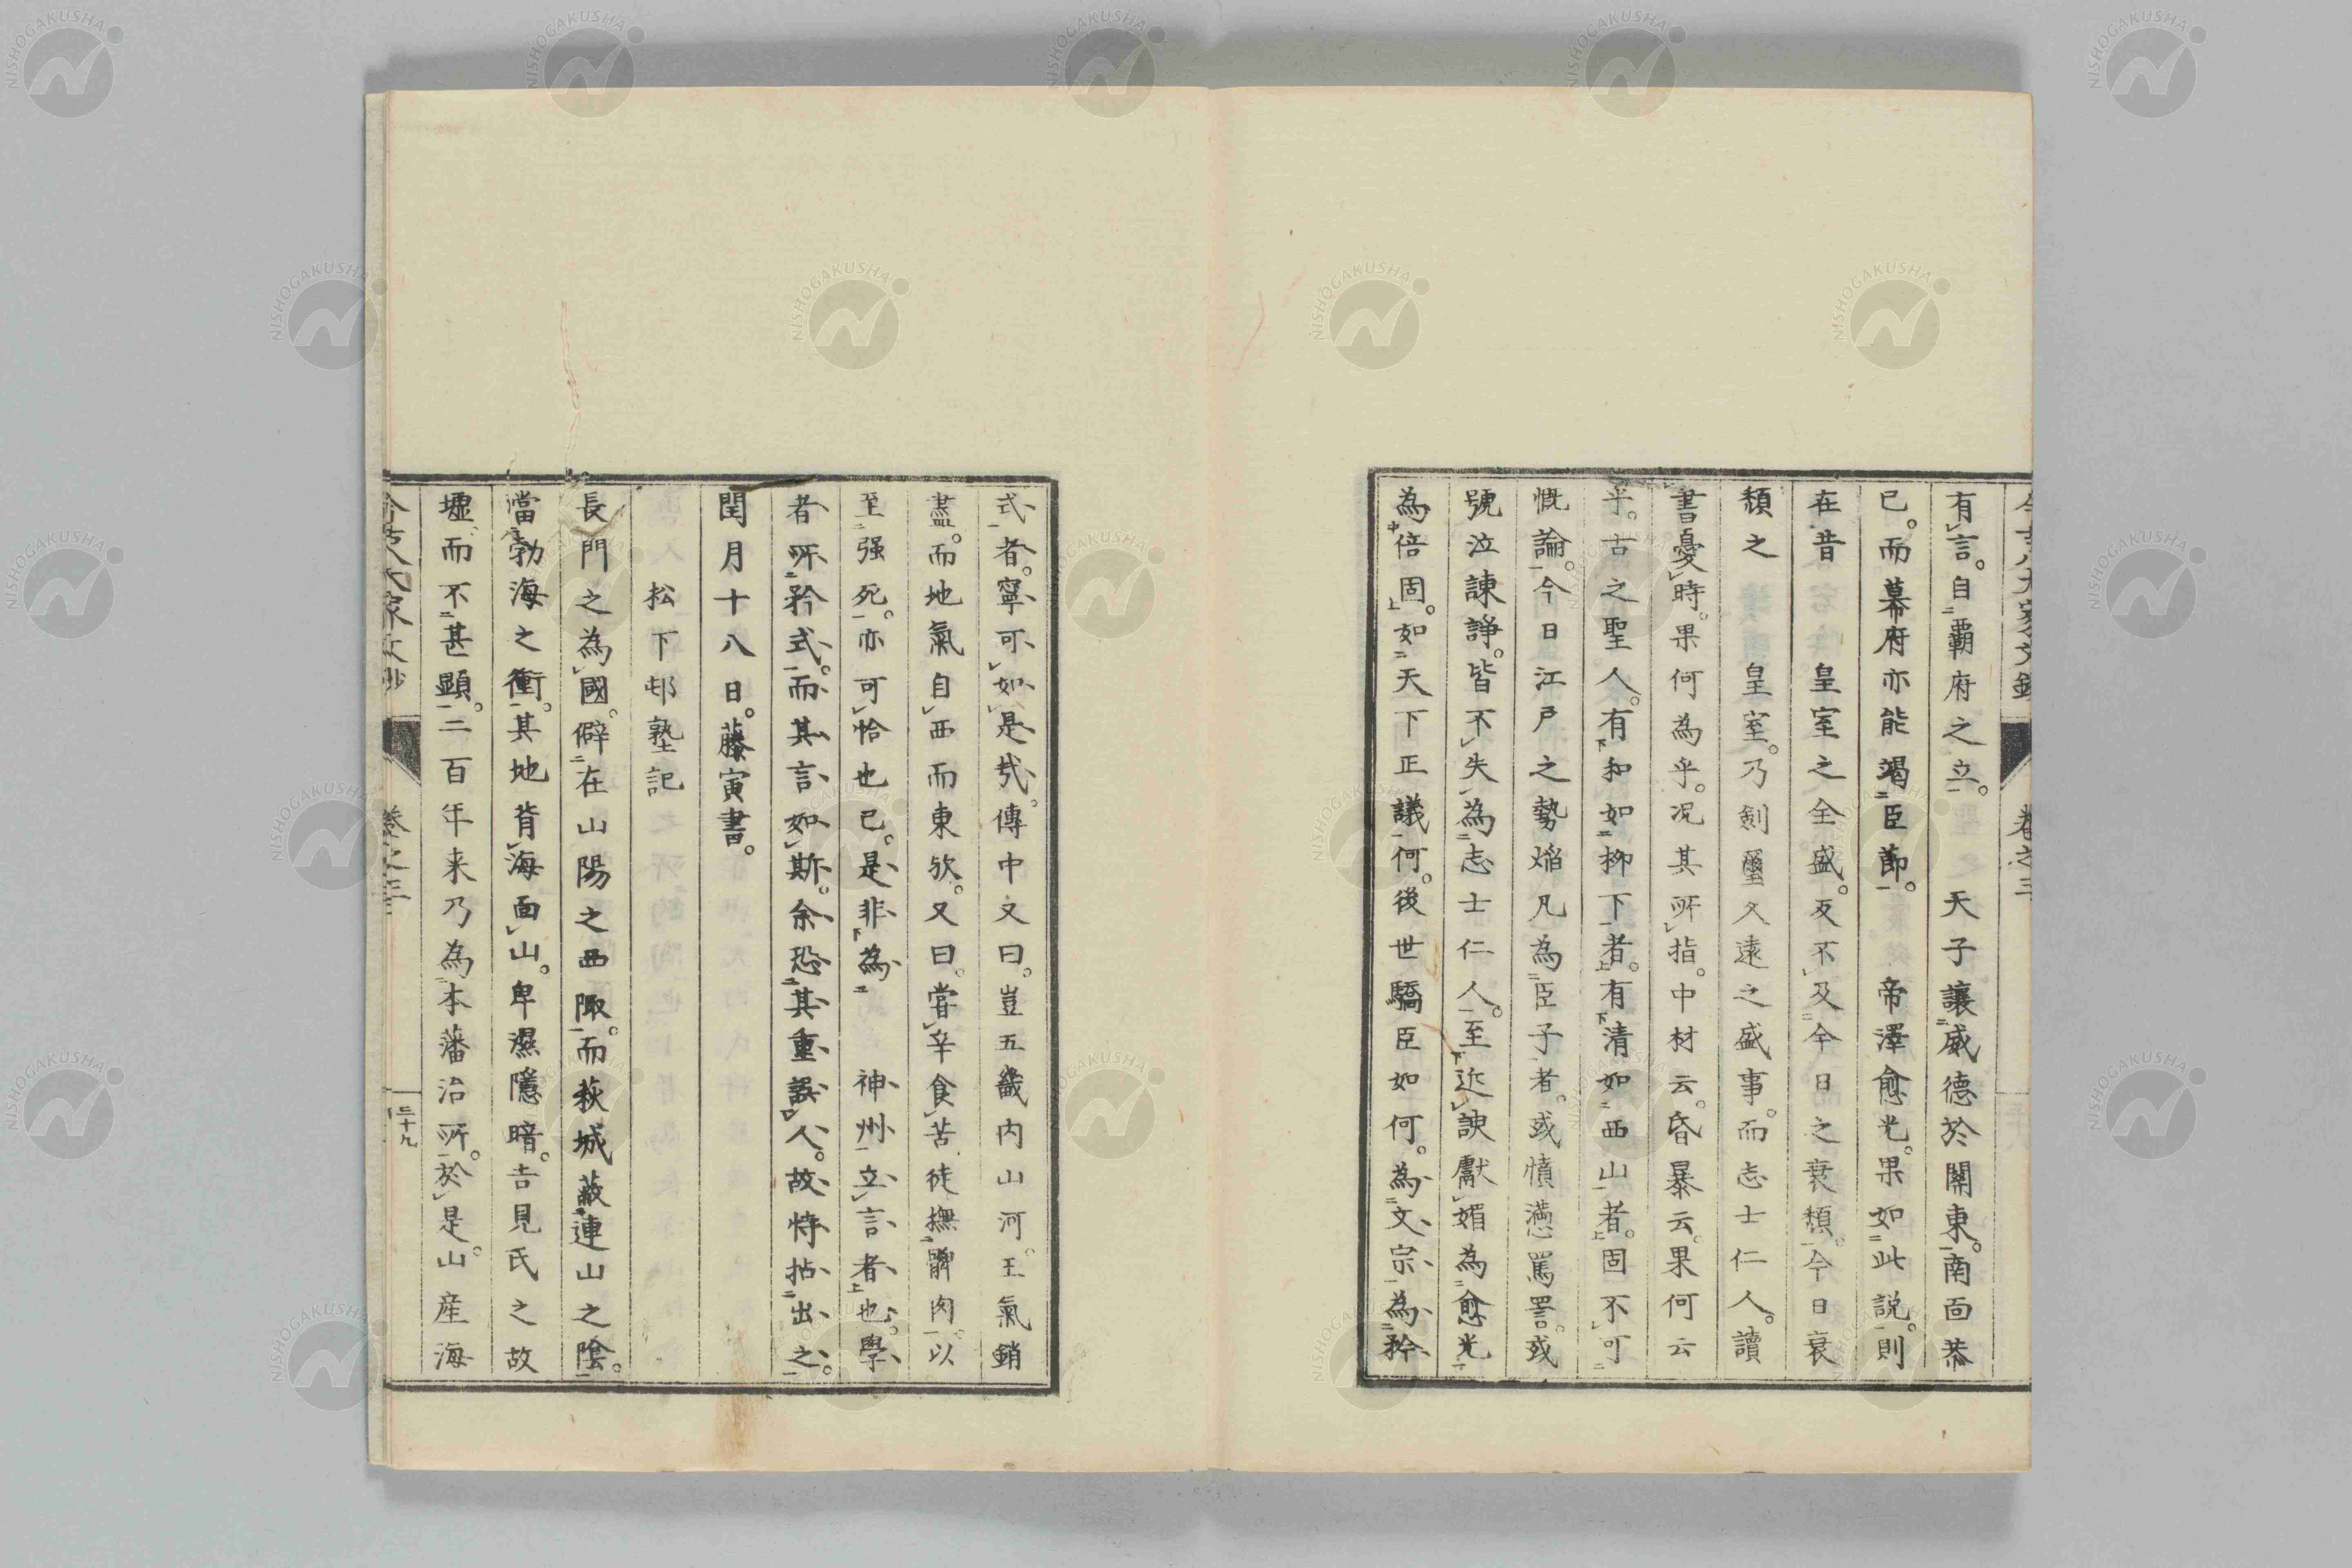 有言。自覇府之立。　天子讓威德於關東。南面恭
已。而幕府亦能竭臣節。　帝澤愈光。果如此説。則
在昔　皇室之全盛。反不及今日之衰頽。今日衰
頽之　皇室。乃劍璽久遠之盛事。而志士仁人。讀
書憂時。果何為乎。况其所指。中材云。昏暴云。果何云
乎。古之聖人。有和如柳下者。有清如西山者。固不可
慨論。今日江戸之勢焔。凡為臣子者。或憤懣罵詈。或
號泣諫諍。皆不失為志士仁人。至近諛獻媚為愈光
為倍固。如天下正議何。後世驕臣如何。為文宗為矜
式者。寧可如是哉。傳中文曰。豈五畿内山河。王氣銷
盡。而地氣自西而東欤。又曰。甞辛食苦。徒撫髀肉。以
至强死。亦可恰也已。是非為　神州立言者也。學
者所矜式。而其言如斯。余恐其重誤人。故特拈出之。
閏月十八日。藤寅書。
松下邨塾記
長門之為國。僻在山陽之西陬。而萩城蔽連山之陰。
當勃海之衝。其地背海面山。卑濕隱暗。吉見氏之故
墟。而不甚顯。二百年来乃為本藩治所。於是山産海
卷之三
三十九